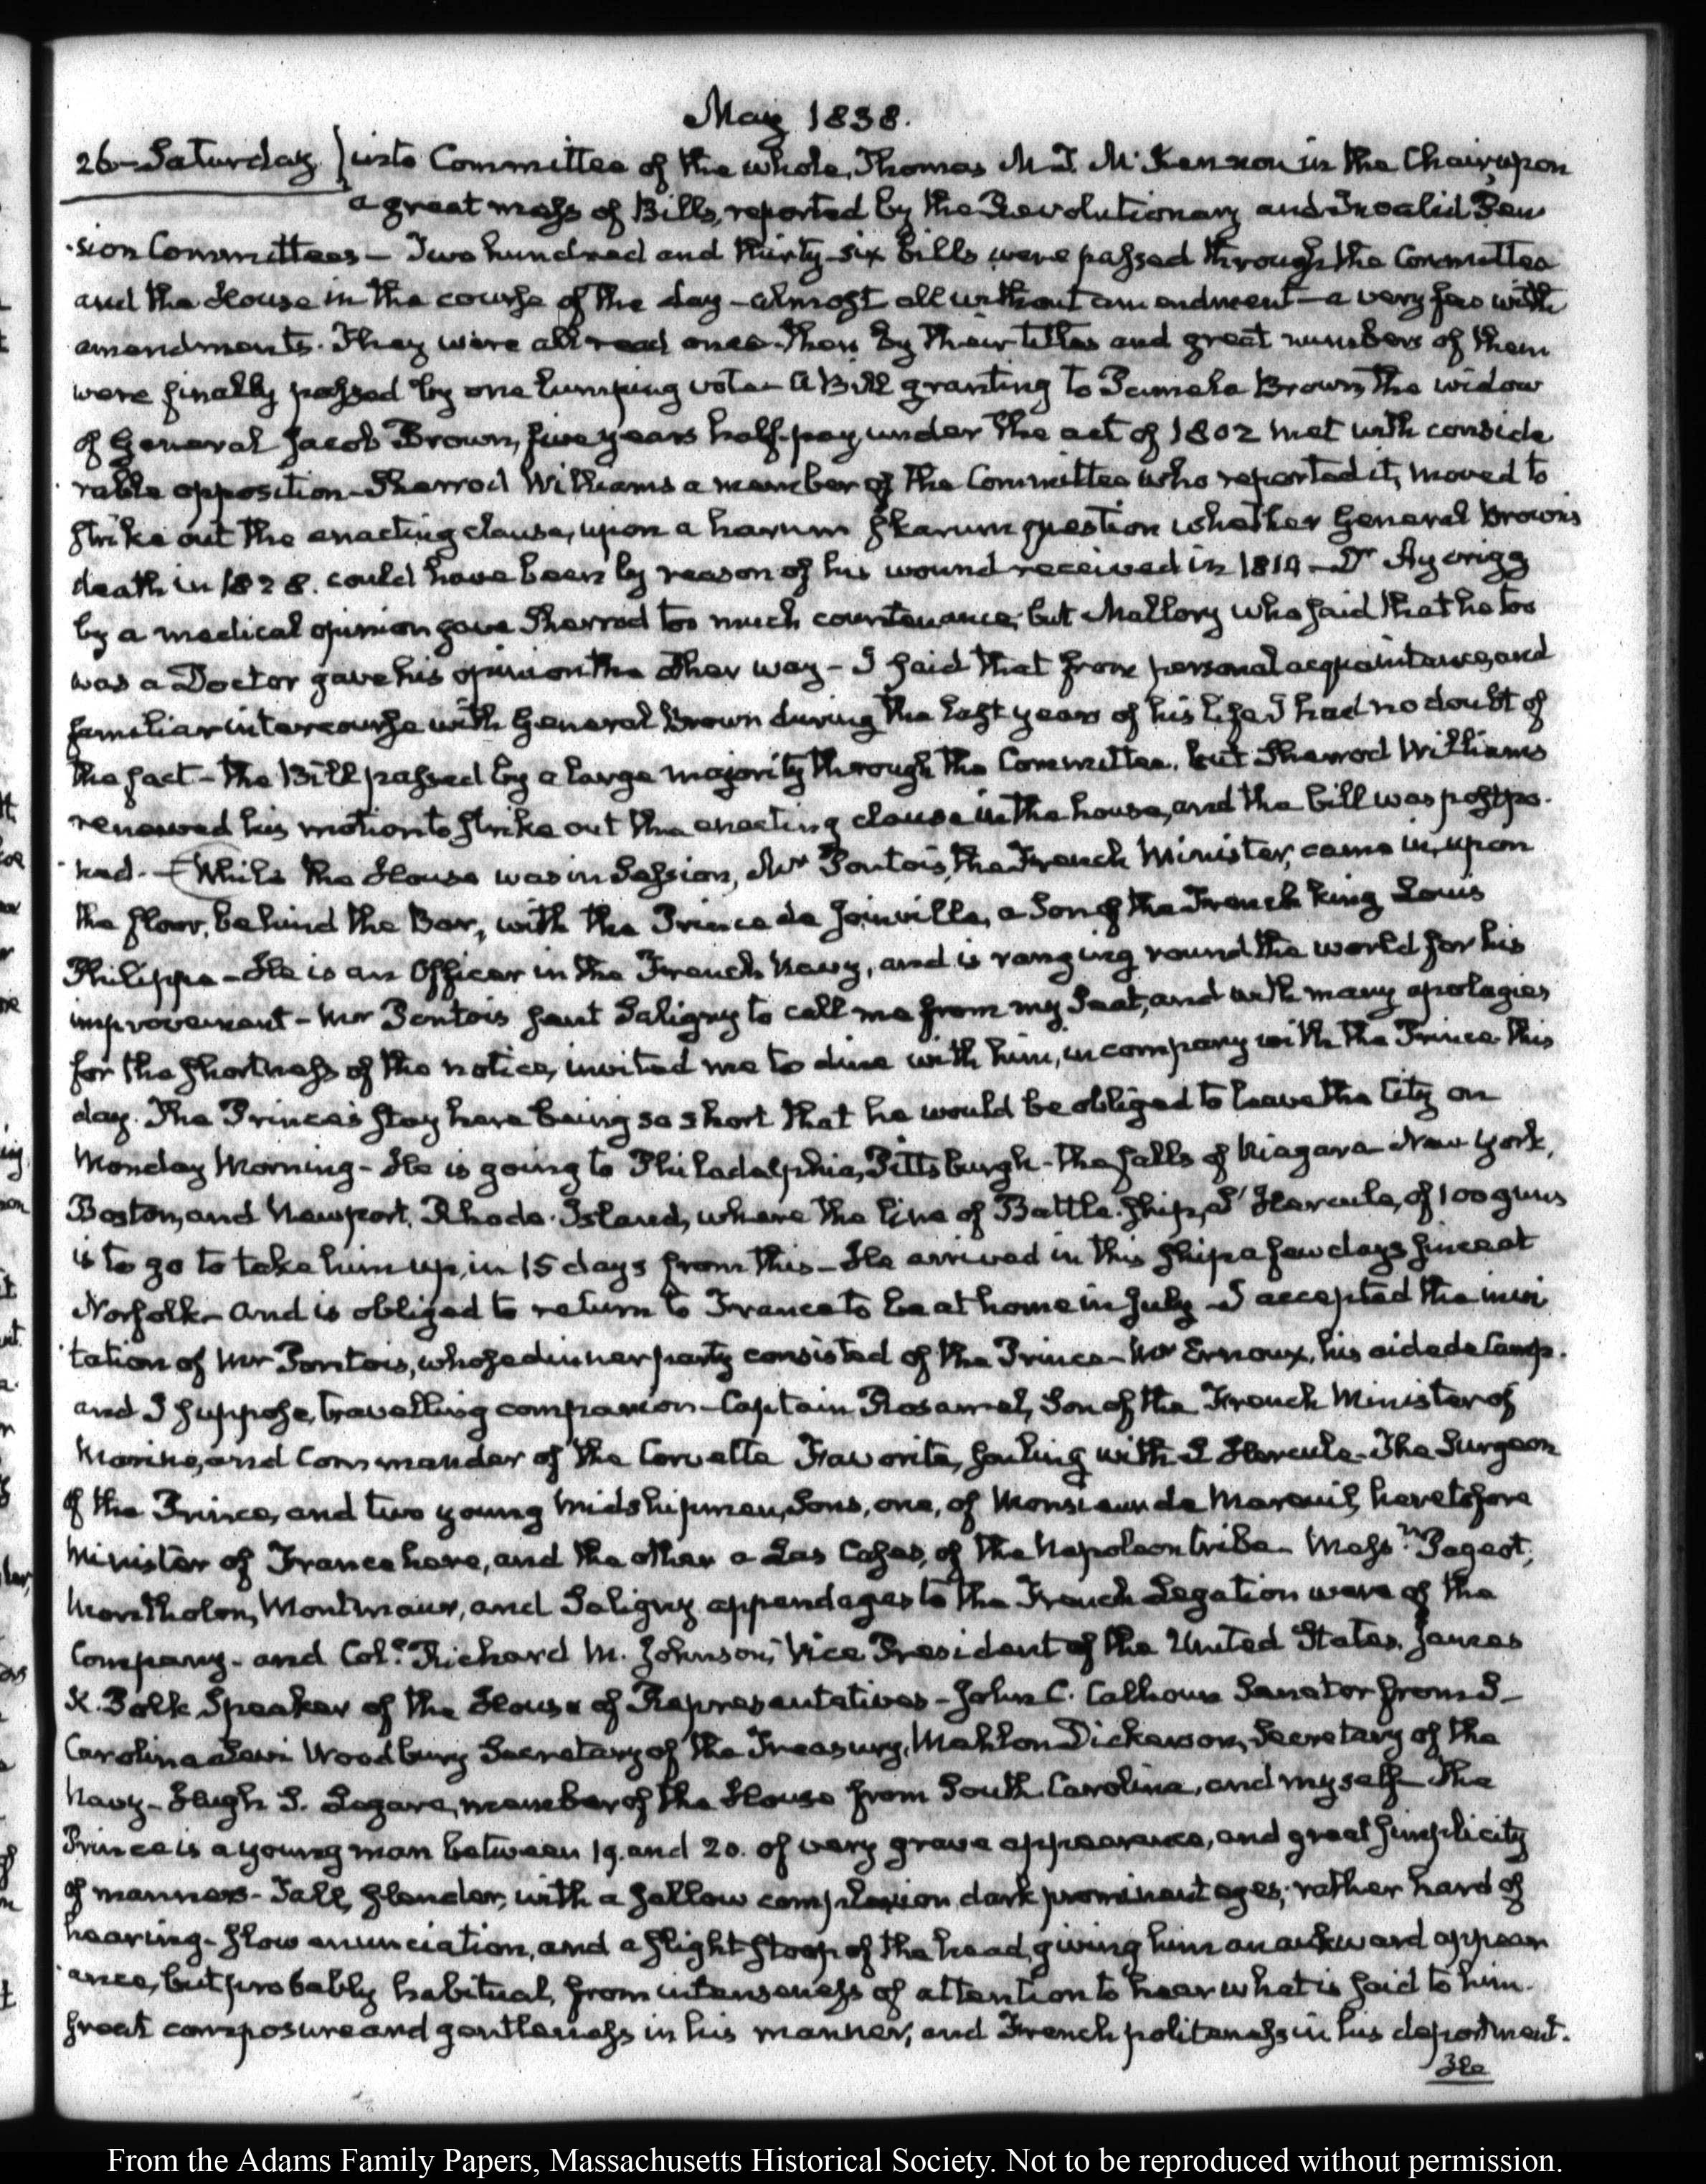 May 1838.
26—Saturday } into Committee of the whole, Thomas M. T. McKennon in the Chair, upon
a great mass of Bills, reported by the Revolutionary and Invalid Pen
sion Committees — Two hundred and thirty-six bills were passed through the Committee
and the House in the course of the day — almost all without amendment — a very few with
amendments. They were all read once then by their titles and great numbers of them
were finally passed by one lumping vote — A Bill granting to Pamela Brown, the widow
of General Jacob Brown, five years half-pay, under the act of 1802 met with conside
rable opposition — Sherrod Williams a member of the Committee who reported it, moved to
strike out the enacting clause, upon a harum skarum question whether General Brown's
death in 1828. could have been by reason of his wound received in 1814 — Dr Aycrigg
by a medical opinion gave Sherrod too much countenance; but Mallory who said that he too
was a Doctor gave his opinion the other way — I said that from personal acquaintance, and
familiar intercourse with General Brown during the last years of his life I had no doubt of
the fact — the Bill passed by a large majority through the Committee, but Sherrod Williams
renewed his motion to strike out the enacting clause in the house, and the bill was postpo-
ned. — While the House was in Session, Mr Pontois, the French Minister, came in, upon
the floor, behind the Bar, with the Prince de Joinville, a Son of the French King Louis
Philippe — He is an Officer in the French Navy, and is ranging round the world for his
improvement — Mr Pontois sent Saligny to call me from my Seat, and with many apologies
for the shortness of the notice, invited me to dine with him, in company with the Prince this
day. The Prince's stay here being so short that he would be obliged to leave the City on
Monday Morning — He is going to Philadelphia, Pittsburgh — the falls of Niagara — New York,
Boston, and Newport, Rhode-Island, where the line of Battle-ship, L'Hercule, of 100 guns
is to go to take him up, in 15 days from this — He arrived in this ship a few days since at
Norfolk — and is obliged to return to France to be at home in July — I accepted the invi
tation of Mr Pontois, whose dinner party consisted of the Prince — Mr Ernoux, his aide de Camp.
and I suppose, travelling companion — Captain Rosamel, Son of the French Minister of
Marine, and Commander of the Corvette Favorite, sailing with L'Hercule — The Surgeon
of the Prince, and two young Midshipmen, Sons, one, of Monsieur de Mareuil, heretofore
Minister of France here, and the other a Las Cases, of the Napoleon tribe — Messrs Pageot,
Montholon, Montmaur, and Saligny appendages to the French Legation were of the
Company — and Col. Richard M. Johnson, Vice President of the United States, James
K. Polk Speaker of the House of Representatives — John C. Calhoun Senator from S—
Carolina Levi Woodbury Secretary of the Treasury, Mahlon Dickerson, Secretary of the
Navy — Hugh S. Legare, member of the House from South Carolina, and myself — The
Prince is a young man between 19. and 20. of very grave appearance, and great simplicity
of manners — Tall, slender, with a sallow complexion dark prominent eyes; rather hard of
hearing — slow enunciation, and a slight stoop of the head, giving him an awkward appear
ance, but probably habitual, from intenseness of attention to hear what is said to him.
great composure and gentleness in his manner, and French politeness in his deportment.
He
From the Adams Family Papers, Massachusetts Historical Society. Not to be reproduced without permission.